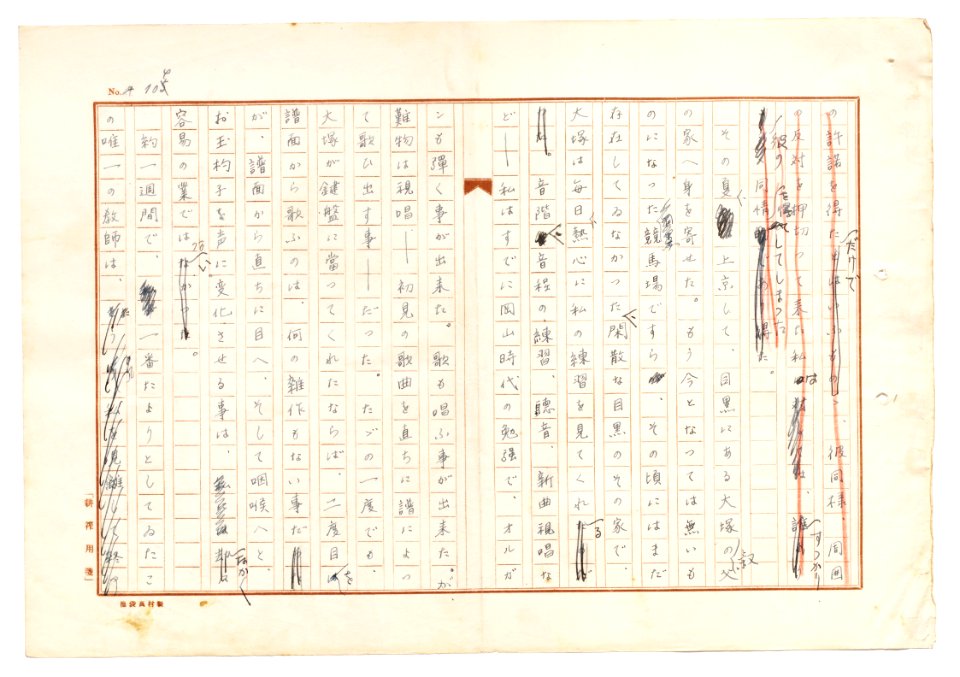 の許諾を得た
だけで
とはいふものゝ、彼同様、周囲
の反対を押切って来た私は
すつかり
彼の
同情を得てしまった
得た。
その夏、上京して、目黒にある大塚の叔父
の家へ身を寄せた。もう今となつては無いも
のになつた競馬場ですら、その頃にはまだ
存在してゐなかつた、閑散な目黒のその家で、
大塚は毎日、熱心に私の練習を見てくれる
。音階、音程の練習、聴音、新曲視唱な
ど――私はすでに岡山時代の勉強で、オルガ
ンも弾く事が出来た。歌も唱ふ事が出来た。が、
難物は視唱――初見の歌曲を直ちに譜によつ
て歌ひ出す事――だつた。たゞの一度でも、
大塚が鍵盤に當つてくれたならば、二度目を
譜面から歌ふのは、何の雑作もない事だ
が、譜面から直ちに目へ、そして咽喉へと、
お玉杓子を声に変化させる事は、なかなか
容易の業ではない。
約一週間で、一番たよりとしてゐたこ
の唯一の教師は、
No. 4
「新潮用箋」